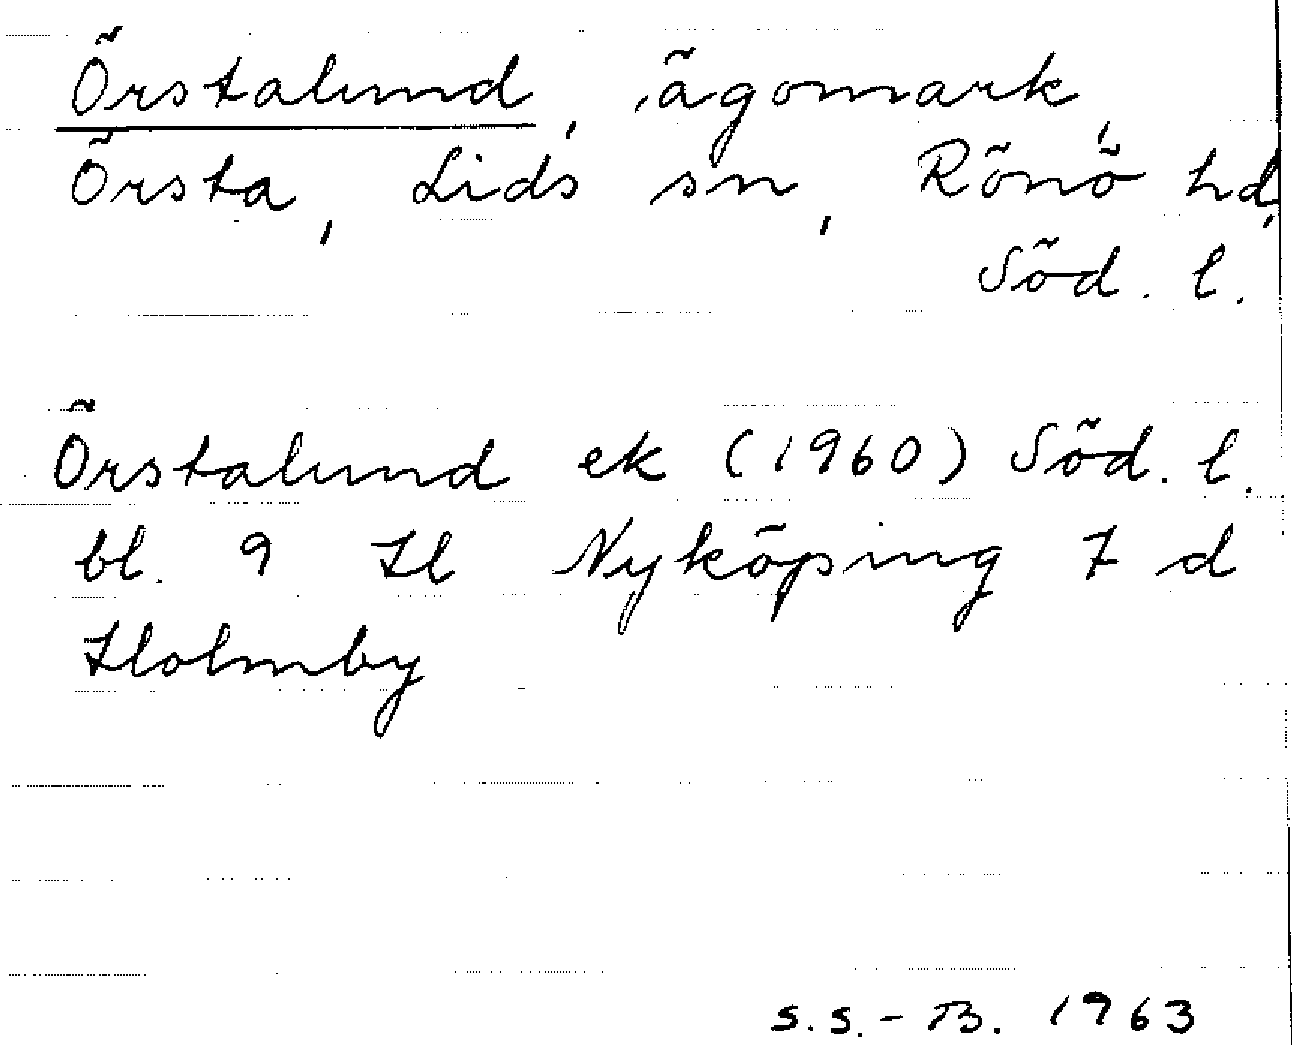 Örstalund, ägomark,
Örsta, Lids sn, Rönö hd,
Söd. l.
Örstalund ek (1960) Söd. l.
bl. 9 Il Nyköping 7 d
Holmby
S.S.-B. 1963